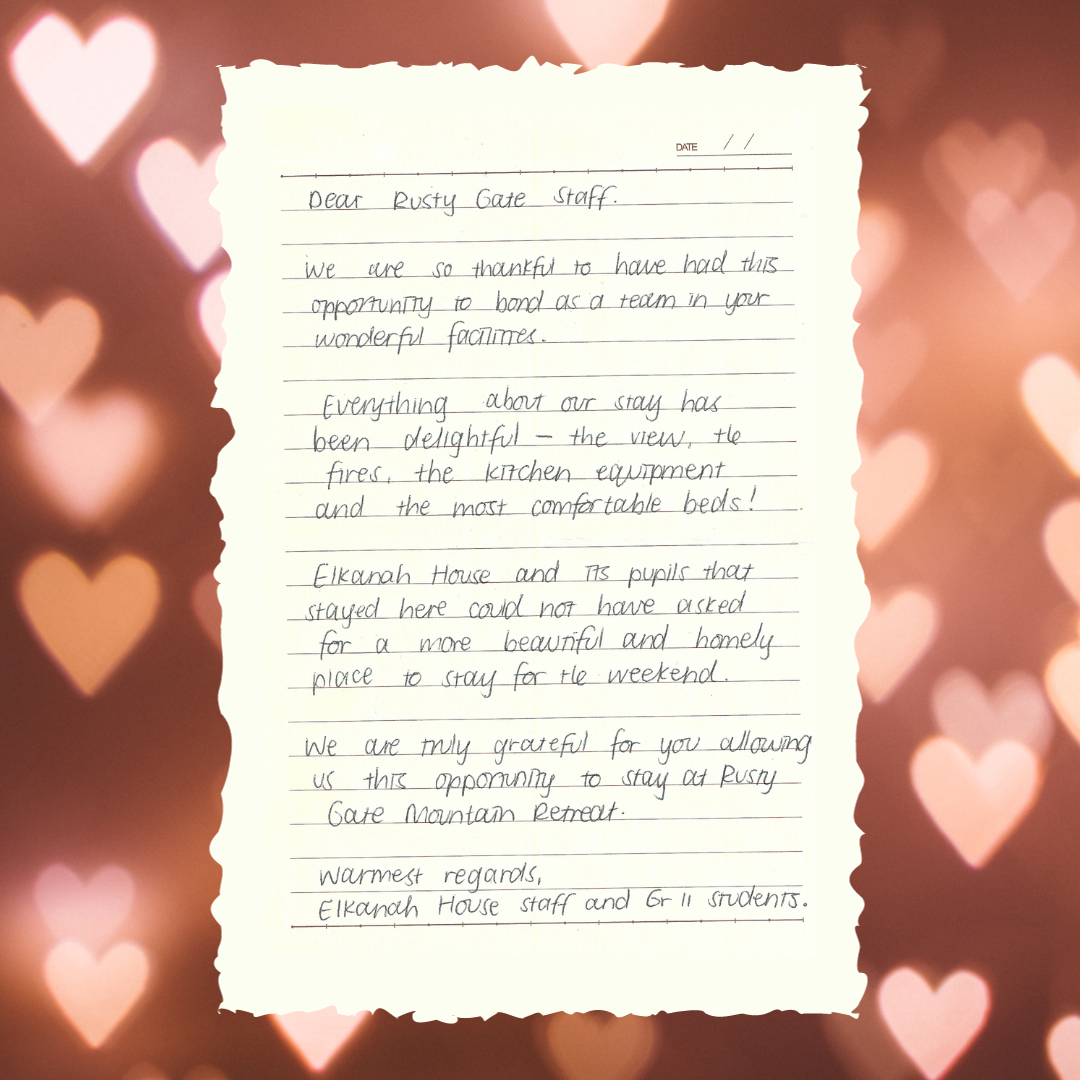 DATE / /
Dear Rusty Gate Staff.
We are so thankful to have had this
opportunity to bond as a team in your
wonderful facilities.
Everything about our stay has
been delightful – the view, the
fires, the kitchen equipment
and the most comfortable beds!
Elkanah House and its pupils that
stayed here could not have asked
for a more beautiful and homely
place to stay for the weekend.
We are truly grateful for you allowing
us this opportunity to stay at Rusty
Gate Mountain Retreat.
Warmest regards,
Elkanah House staff and Gr 11 students.